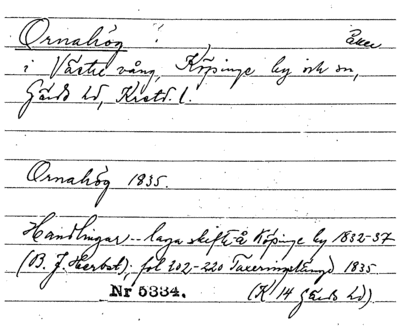 Ornahög Åker
i Västre vång, Köpinge by och sn,
Gärds hd, Krstd. l.
Ornahög 1835.
Handlingar -- laga skifte å Köpinge by 1832-37
(B. J. Herbst), fol 202-220 Taxeringslängd 1835
Nr 5334. (K 14 Gärds hd)